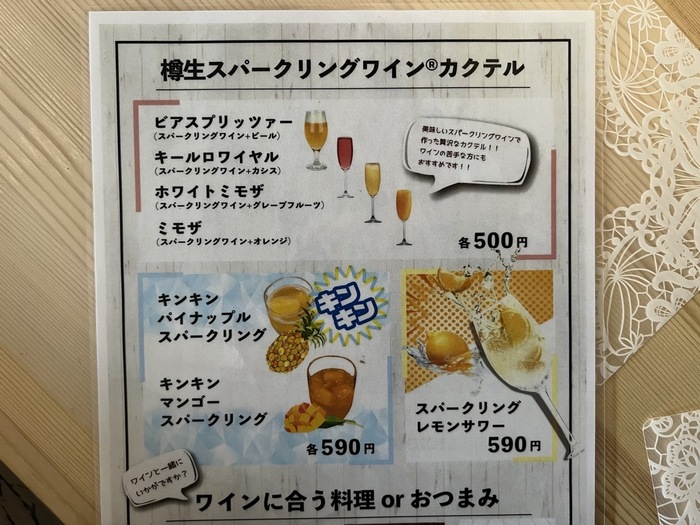 樽生スパークリングワイン®カクテル
ビアスプリッツァー
(スパークリングワイン+ビール)
キールロワイヤル
(スパークリングワイン+カシス)
ホワイトミモザ
(スパークリングワイン+グレープフルーツ)
ミモザ
(スパークリングワイン+オレンジ)
美味しいスパークリングワインで
作った贅沢なカクテル！！
ワインの苦手な方にも
おすすめです！！
各500円
キンキン
パイナップル
スパークリング
キン
キン
キンキン
マンゴー
スパークリング
各590円
スパークリング
レモンサワー
590円
ワインと一緒に
いかがですか？
ワインに合う料理 or おつまみ